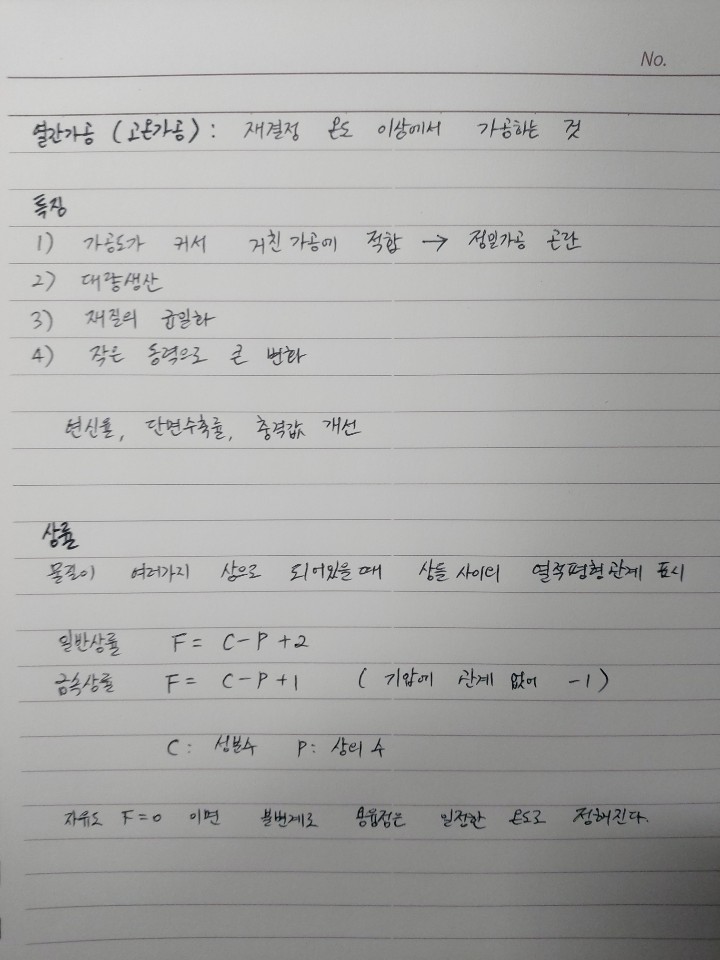 No.
열간가공 (고온가공) : 재결정 온도 이상에서 가공하는 것
특징
1) 가공도가 커서 거친 가공에 적합 → 정밀가공 곤란
2) 대량생산
3) 재질의 균일화
4) 작은 동력으로 큰 변화
연신율, 단면수축률, 충격값 개선
상률
물질이 여러가지 상으로 되어있을 때 상들 사이의 열적평형관계 표시
일반상률 F = C - P + 2
금속상률 F = C - P + 1 ( 기압에 관계 없어 -1 )
C : 성분수 P : 상의 수
자유도 F = 0 이면 불변계로 용융점은 일정한 온도로 정해진다.